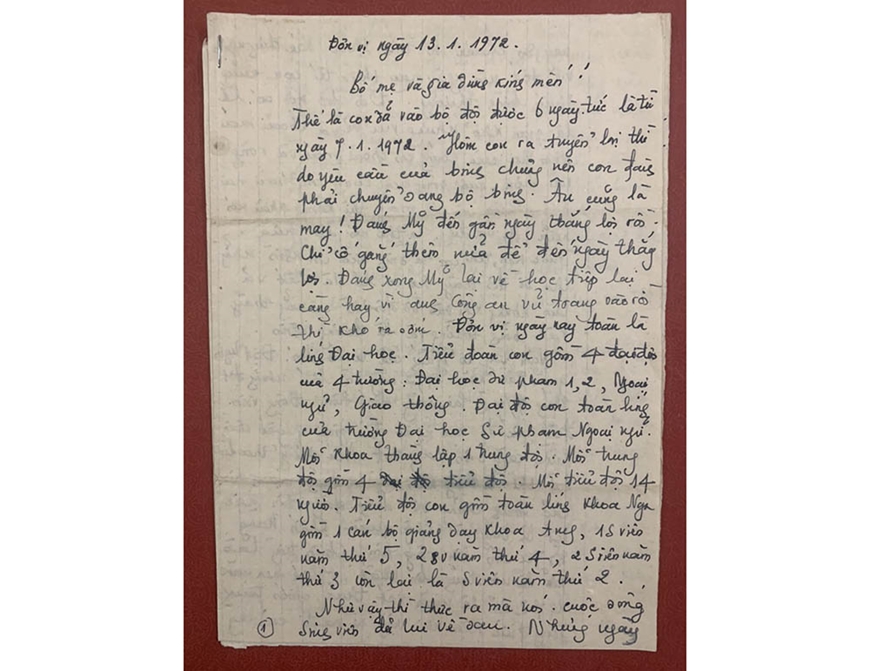 Đơn vị ngày 13.1.1972.
Bố mẹ và gia đình kính mến!
Thế là con đã vào bộ đội được 6 ngày tức là từ
ngày 7.1.1972. Hôm con ra tuyển lại thì
do yêu cầu của binh chủng nên con đang
phải chuyển sang bộ binh. Âu cũng là
may! Đánh Mỹ đến gần ngày thắng lợi rồi.
Chỉ cố gắng thêm nữa để đến ngày thắng
lợi. Đánh xong Mỹ lại về học tiếp lại
càng hay vì cũng Công an vũ trang vào rồi
thì khó ra sớm. Đơn vị ngày nay toàn là
lính Đại học. Tiểu đoàn con gồm 4 đại đội
của 4 trường: Đại học sư phạm 1, 2, Ngoại
ngữ, Giao thông. Đại đội con toàn lính
của trường Đại học Sư phạm Ngoại ngữ.
Mỗi khoa thành lập 1 trung đội. Mỗi trung
đội gồm 4 tiểu đội. Mỗi tiểu đội 14
người. Tiểu đội con gồm toàn lính khoa Nga
gồm 1 cán bộ giảng dạy khoa Anh, 1 S viên
năm thứ 5, 2 sv năm thứ 4, 2 S viên năm
thứ 3 còn lại là S viên năm thứ 2.
Như vậy thì thực ra mà nói cuộc sống
① Sinh viên đã lui về sau. Những ngày